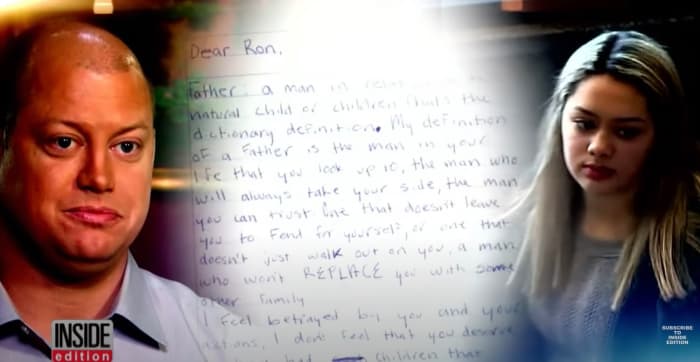 Dear Ron,
Father: a man in
natural child or children (that's the
dictionary definition. My definition
of a Father is the man in your
life that you look up to, the man who
will always take your side, the man
you can trust that doesn't leave
you to Fend for yourself, or one that
doesn't just walk out on you, a man
who won't REPLACE you with some
other family
I feel betrayed by you and your
actions, I don't feel that you deserve
had children that
INSIDE
edition
SUBSCRIBE
TO
INSIDE
EDITION